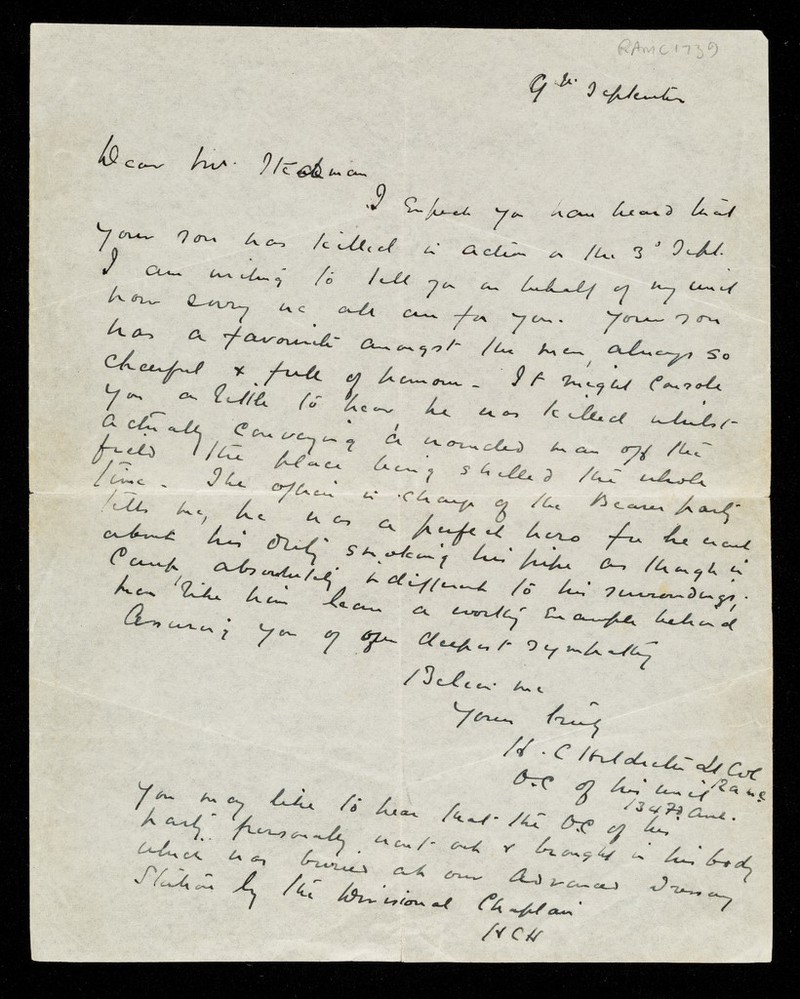 RAMC1739
9th September
Dear Mr. Steadman
I Expect you have heard that
your son was killed in action on the 3d Sept.
I am writing to tell you on behalf of my unit
how sorry we all are for you. Your son
was a favourite amongst the men, always so
cheerful & full of humour - It might Console
you a little to hear he was killed whilst
actually conveying a wounded man off the
field the place being shelled the whole
time - The officer in charge of the Bearer party
tells me, he was a perfect hero for he went
about his duty smoking his pipe as though in
Camp, absolutely indifferent to his surroundings,
men like him leave a worthy Example behind
Assuring you of our deepest sympathy
Believe me
Yours truly
H. C Hildreth Lt Col
RAMC
O.C of his unit
134 Fd Amb.
You may like to hear that the O.C of his
party personally went out & brought in his body
which was buried at our Advanced Dressing
Station by the Divisional Chaplain
HCH